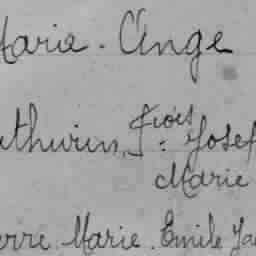 Marie. Ange
athurin, Frois: Josef
Marie
erre. Marie. Emile Ja